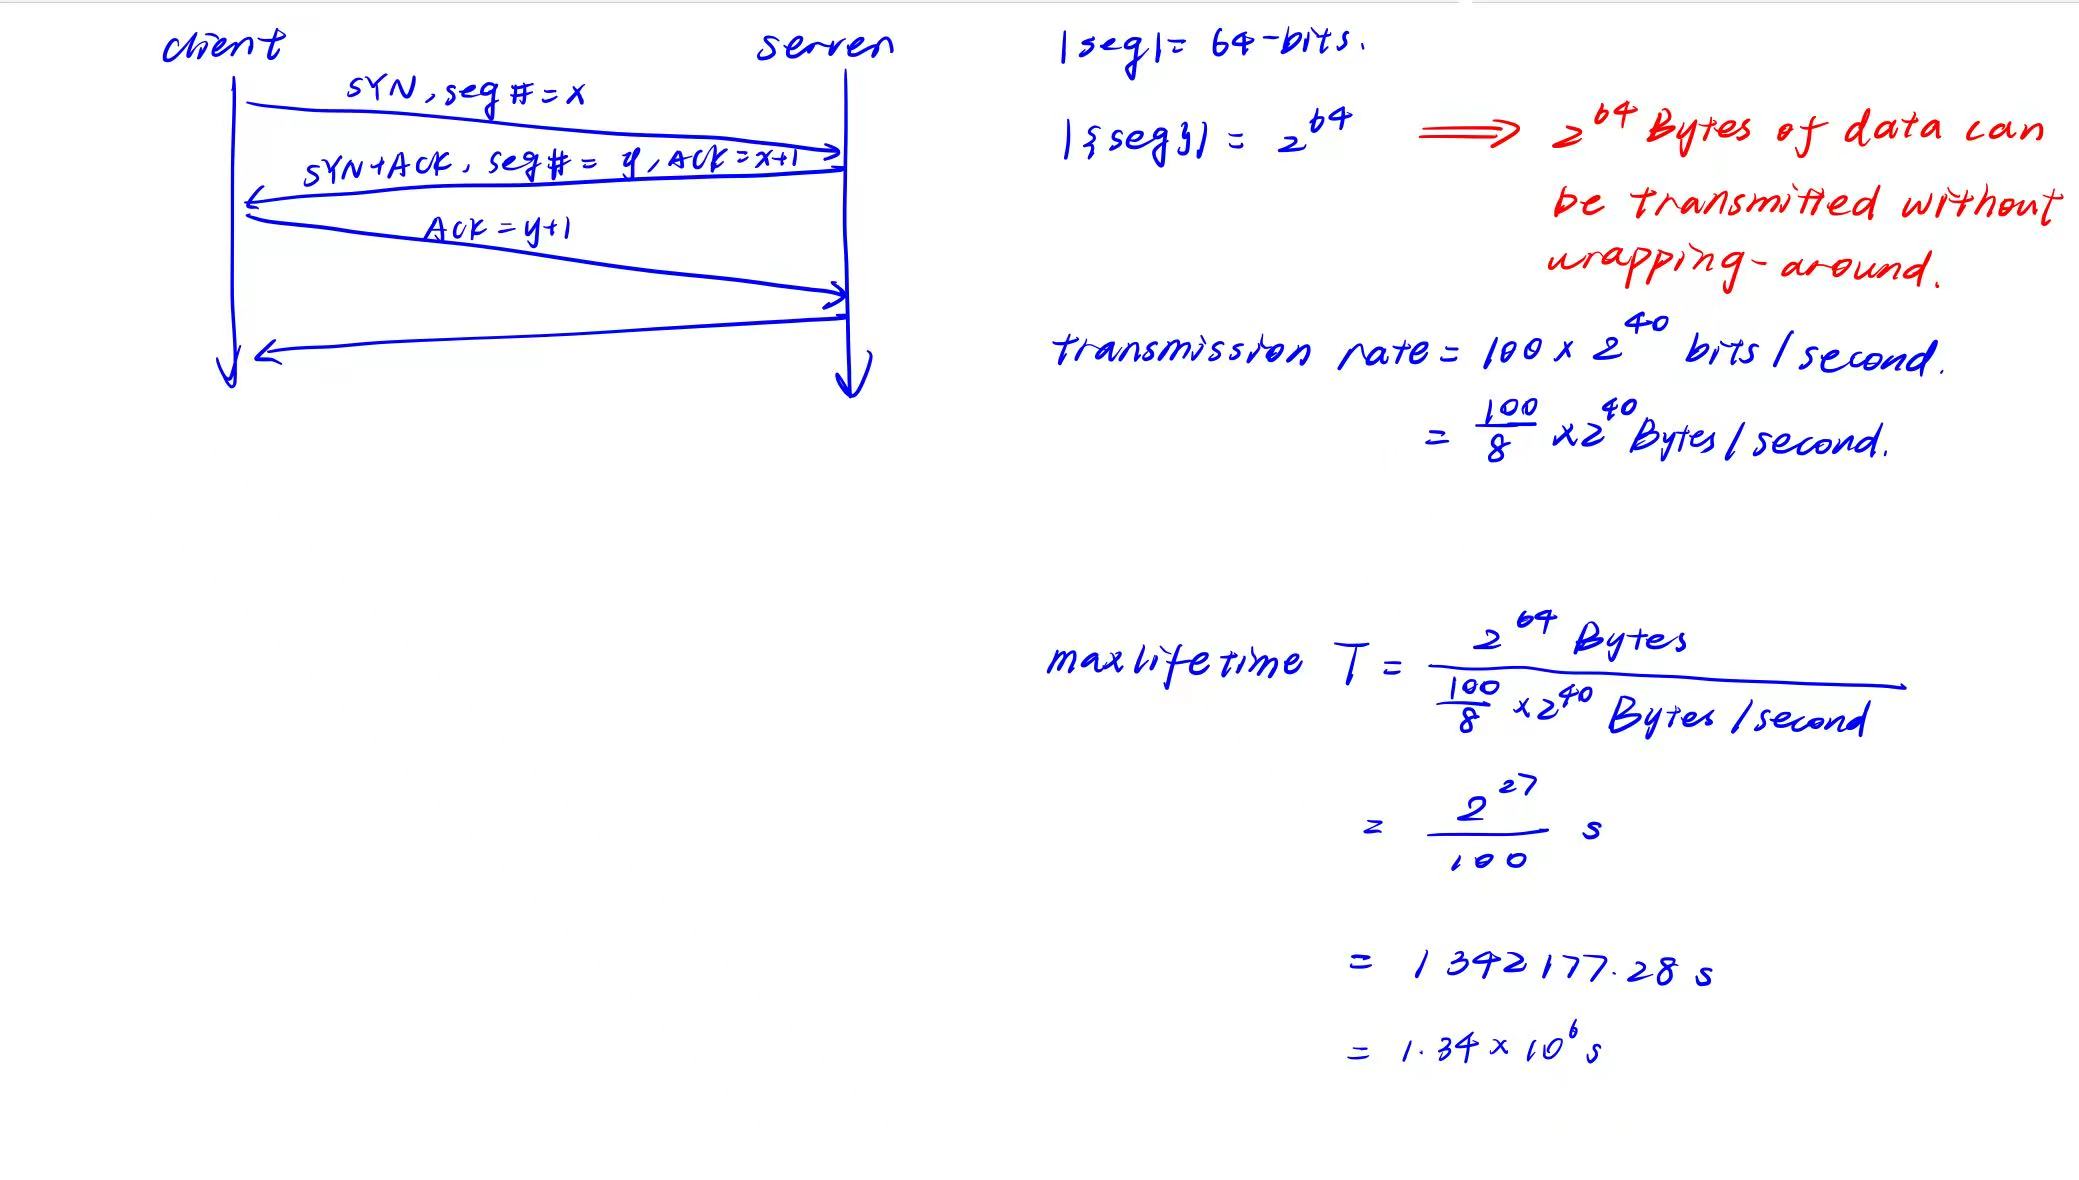 client
server
SYN, seq # = x
SYN+ACK, seq# = y, ACK = x+1
ACK = y+1
|seq| = 64-bits.
|{seq}| = 2^64 ⟹ 2^64 Bytes of data can
be transmitted without
wrapping-around.
transmission rate = 100 × 2^40 bits / second.
= 100/8 × 2^40 Bytes / second.
max lifetime T = 2^64 Bytes / (100/8 × 2^40 Bytes / second)
= 2^27 / 100 s
= 1342177.28 s
= 1.34 × 10^6 s